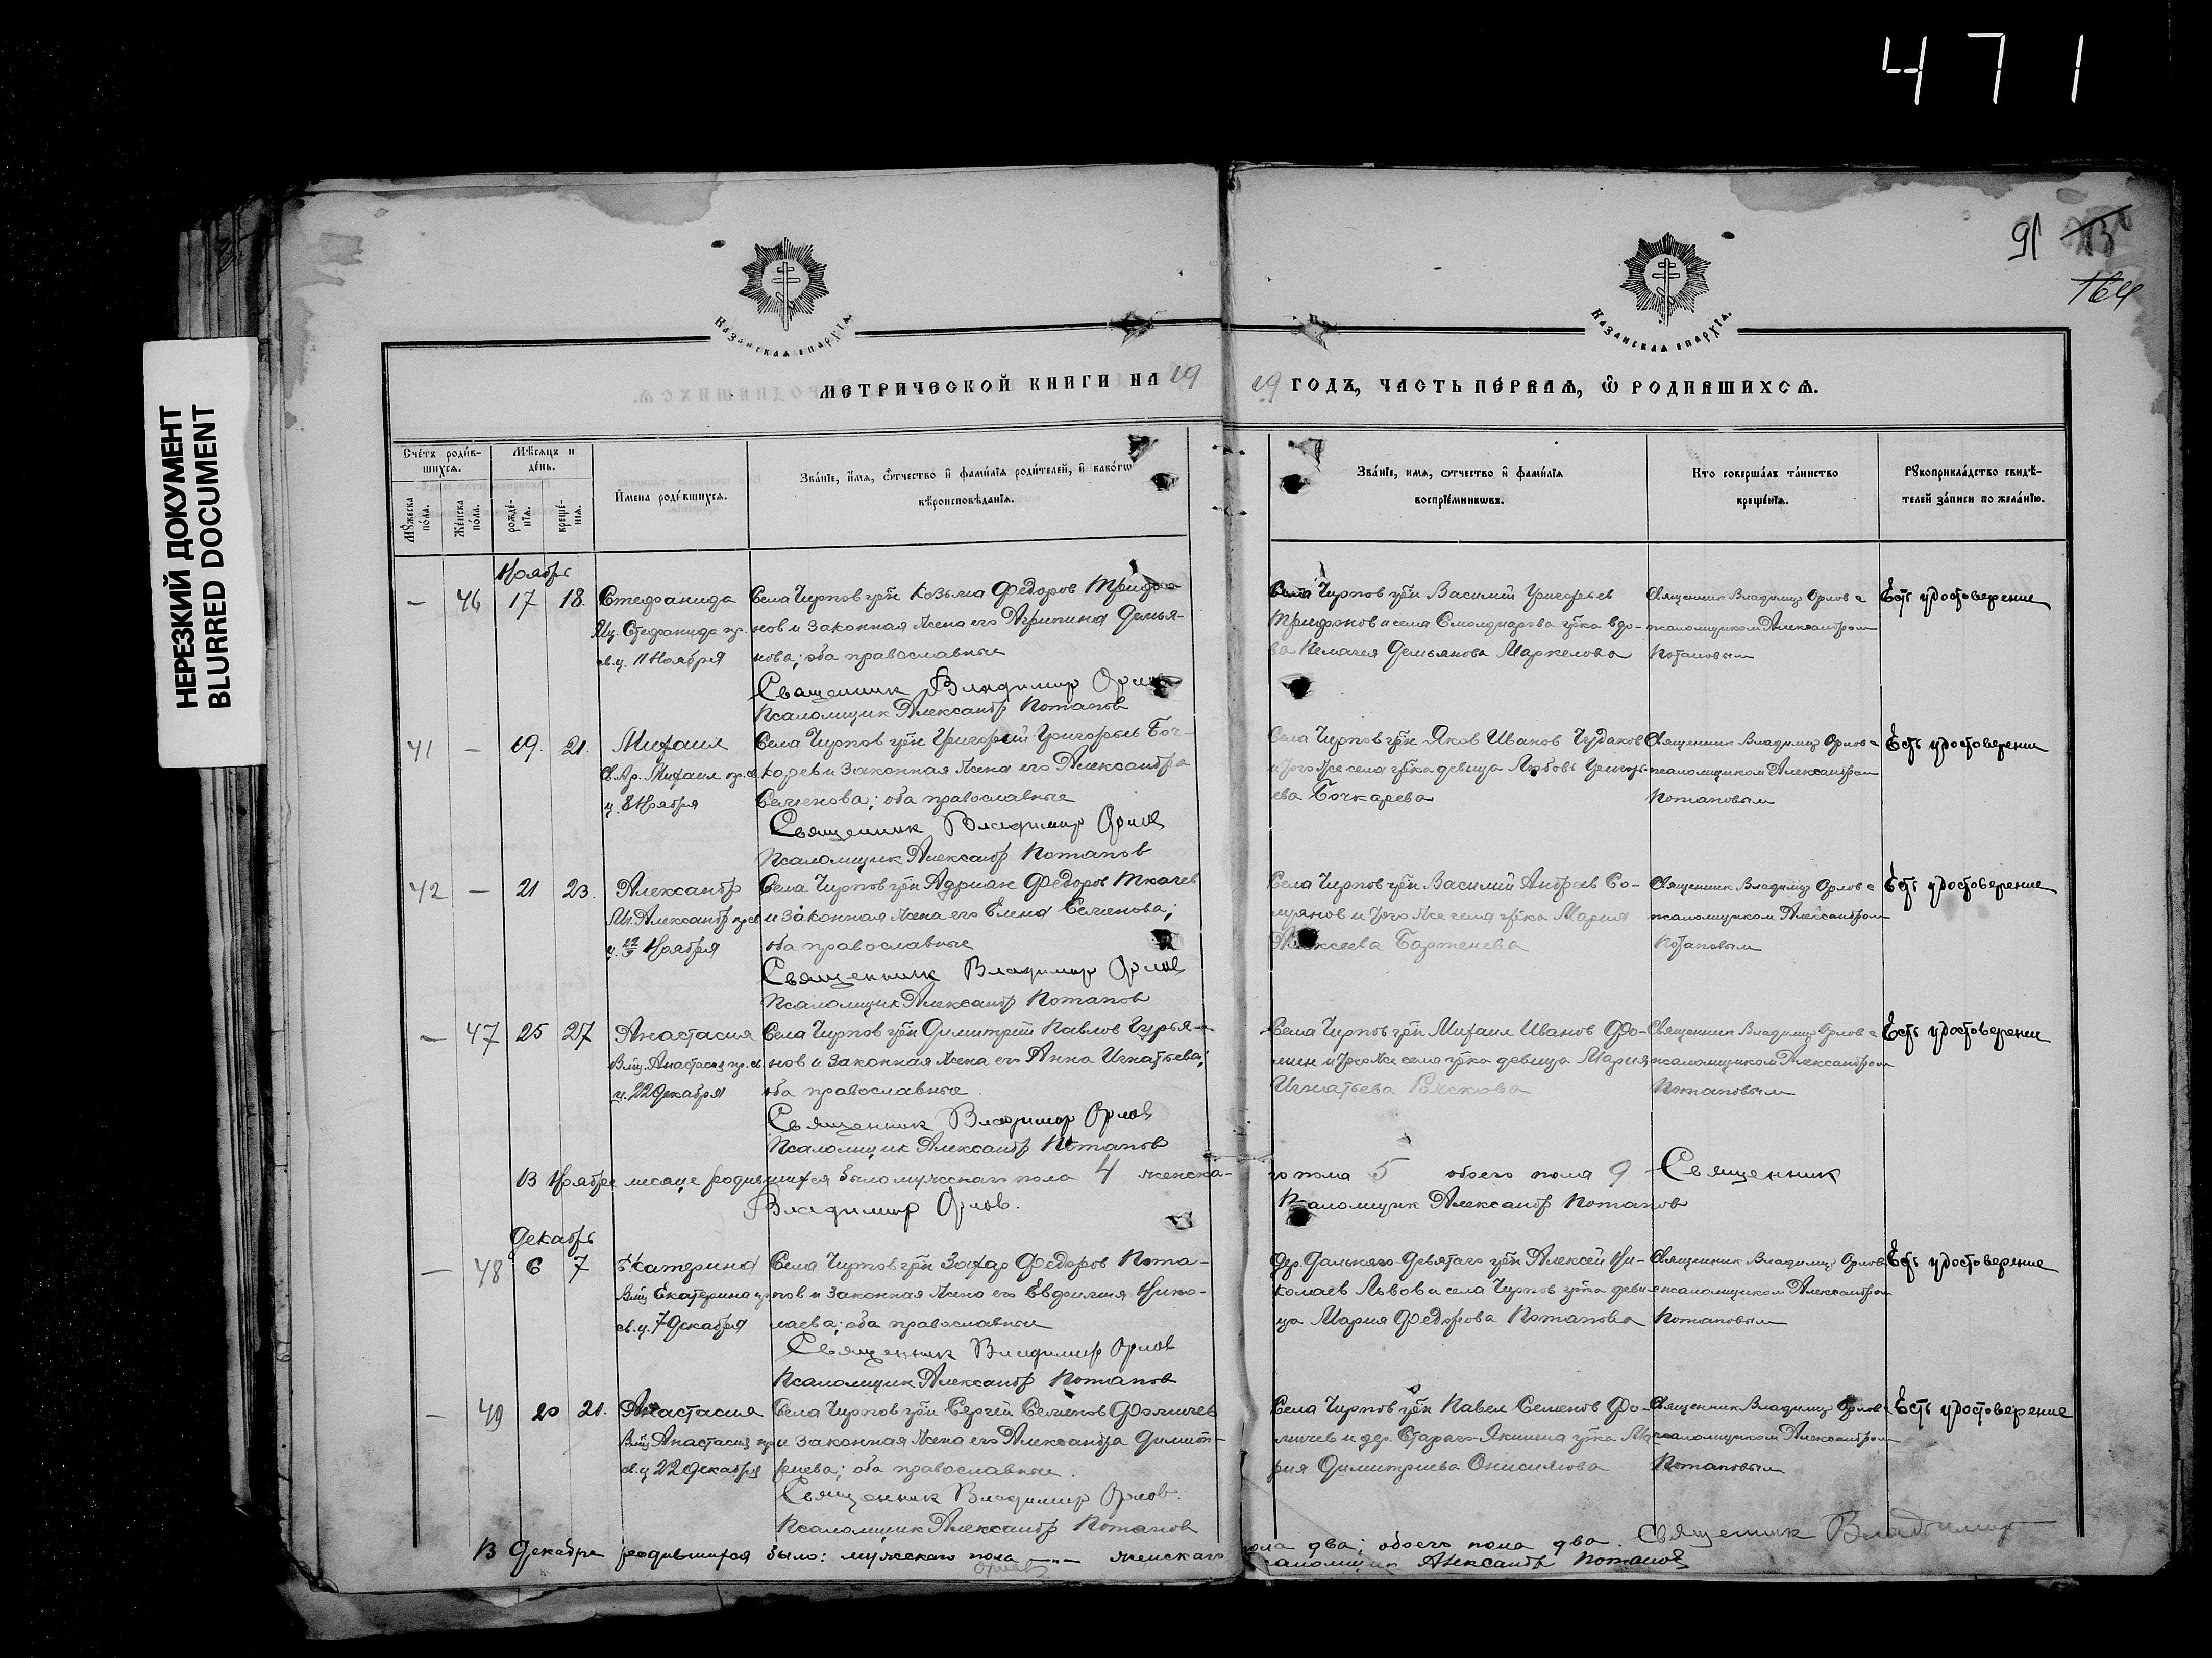 471
НЕРЕЗКИЙ ДОКУМЕНТ
BLURRED DOCUMENT
91
164
Казанская епархїѧ.
Казанская епархїѧ.
МЕТРИЧЕСКОЙ КНИГИ НА 19
19 ГОДЪ, ЧАСТЬ ПЕ́РВАѦ, Ѡ РОДИВШИХСѦ.
Сче́тъ роди́в-
шихсѧ.
Мѣ́сѧцъ и
де́нь.
Мꙋ́жеска
по́ла.
Же́нска
по́ла.
рожде́-
нїѧ.
креще́-
нїѧ.
И́мена роди́вшихсѧ.
Зва́нїе, и́мѧ, ѻ́тчество и҆ фами́лїѧ роди́телей, и҆ како́гѡ
вѣроисповѣ́данїѧ.
Зва́нїе, имѧ, ѻтчество и҆ фами́лїѧ
воспрїе́мникѡвъ.
Кто соверша́лъ та́инство
креще́нїѧ.
Рꙋкоприкла́дство свидѣ́-
телей за́писи по жела́нїю.
Ноябрь
— 46 17 18. Стефанида Села Чирпов грн Козьма Федоров Трифо-
Мц. Стефанида пр. нов и законная жена его Агрипина Демья-
св. ц. 11 Ноября нова; оба православные
Священник Владимир Орлов
Псаломщик Александр Потапов
Села Чирпов грн Василий Григорьев
Трифонов и села Смолдиарова грка вдо-
ва Пелагея Демьянова Маркелова
Священник Владимир Орлов с
псаломщиком Александром
Потаповым
Есть удостоверение
41 — 19. 21. Михаил Села Чирпов грн Григорий Григорьев Боч-
Св. Ар. Михаил пр. св. карев и законная жена его Александра
ц. 8 Ноября Семенова; оба православные
Священник Владимир Орлов
Псаломщик Александр Потапов
Села Чирпов грн Яков Иванов Чудаков
и того же села грка девица Любовь Григорь-
ева Бочкарева
Священник Владимир Орлов с
псаломщиком Александром
Потаповым
Есть удостоверение
42 — 21 23. Александр Села Чирпов грн Адриан Федоров Ткачев
Мч. Александр пр св и законная жена его Елена Семенова;
ц. Ноября оба православные
Священник Владимир Орлов
Псаломщик Александр Потапов
Села Чирпов грн Василий Андреев Со-
и того же села грка Мария
Алексеева Бартенева
Священник Владимир Орлов с
псаломщиком Александром
Потаповым
Есть удостоверение
— 47 25 27 Анастасия Села Чирпов грн Димитрий Павлов Гурья-
Вмц. Анастасия пр. св. нов и законная жена его Анна Игнатьева;
ц. 22 Декабря оба православные
Священник Владимир Орлов
Псаломщик Александр Потапов
Села Чирпов грн Михаил Иванов Фо-
мин и того же села грка девица Мария
Игнатьева
Священник Владимир Орлов с
псаломщиком Александром
Потаповым
Есть удостоверение
В Ноябре месяце родившихся было мужескаго пола 4 женска-
го пола 5 обоего пола 9 Священник
Владимир Орлов.
Псаломщик Александр Потапов
Декабрь
— 48 6 7 Екатерина Села Чирпов грн Захар Федоров Пота-
Вмц Екатерина пр пов и законная жена его Евфимия Нико-
св. ц. 7 Декабря лаева; оба православные
Священник Владимир Орлов
Псаломщик Александр Потапов
Дер. Дальняго-Девятаго грн Алексей Ни-
колаев Львов и села Чирпов грка деви-
ца Мария Федорова Потапова
Священник Владимир Орлов
псаломщиком Александром
Потаповым
Есть удостоверение
— 49 20 21. Анастасия Села Чирпов грн Сергей Семенов Фомичев
Вмц Анастасия пр и законная жена его Александра Димит-
св. ц 22 Декабря риева; оба православные.
Священник Владимир Орлов.
Псаломщик Александр Потапов
Села Чирпов грн Павел Семенов Фо-
мичев и дер. Стараго-Якшена грка Ма-
рия Димитриева Онисимова
Священник Владимир Орлов с
псаломщиком Александром
Потаповым
Есть удостоверение
В Декабре родившихся было: мужескаго пола — женскаго пола два; обоего пола два. Священник Владимир
Орлов
Псаломщик Александр Потапов